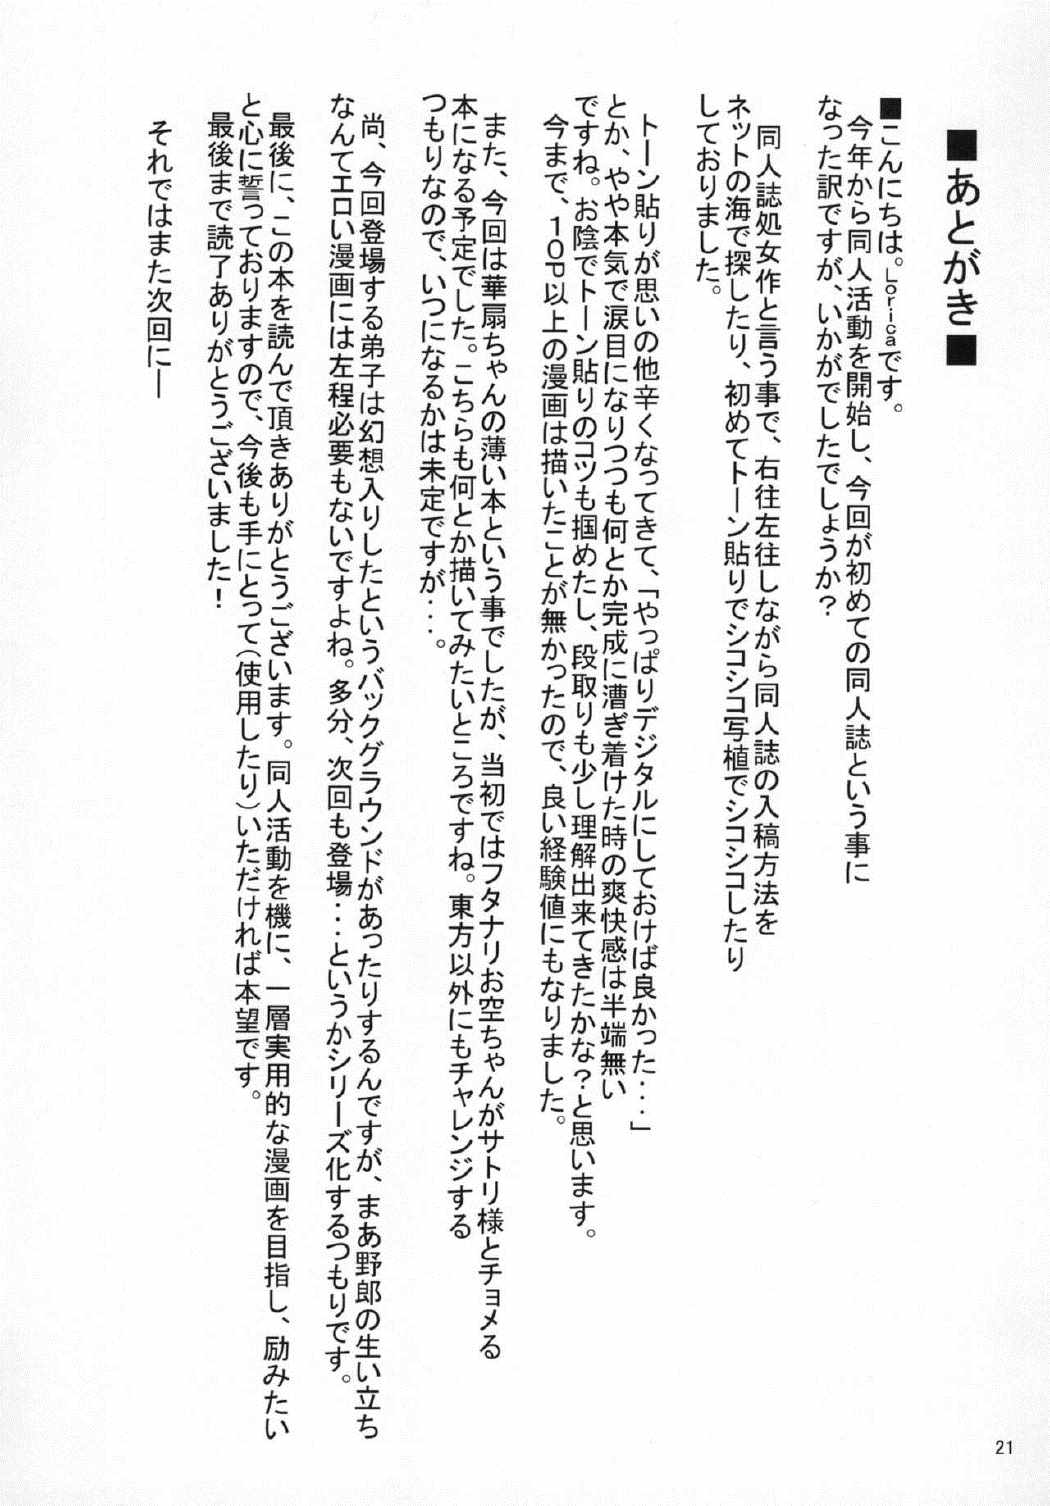 ■あとがき■
■こんにちは。Loricaです。
今年から同人活動を開始し、今回が初めての同人誌という事に
なった訳ですが、いかがでしたでしょうか？
同人誌処女作と言う事で、右往左往しながら同人誌の入稿方法を
ネットの海で探したり、初めてトーン貼りでシコシコ写植でシコシコしたり
しておりました。
トーン貼りが思いの他辛くなってきて、「やっぱりデジタルにしておけば良かった・・・」
とか、やや本気で涙目になりつつも何とか完成に漕ぎ着けた時の爽快感は半端無い
ですね。お陰でトーン貼りのコツも掴めたし、段取りも少し理解出来てきたかな？と思います。
今まで、１０Ｐ以上の漫画は描いたことが無かったので、良い経験値にもなりました。
また、今回は華扇ちゃんの薄い本という事でしたが、当初ではフタナリお空ちゃんがサトリ様とチョメる
本になる予定でした。こちらも何とか描いてみたいところですね。東方以外にもチャレンジする
つもりなので、いつになるかは未定ですが・・・。
尚、今回登場する弟子は幻想入りしたというバックグラウンドがあったりするんですが、まあ野郎の生い立ち
なんてエロい漫画には左程必要もないですよね。多分、次回も登場・・・というかシリーズ化するつもりです。
最後に、この本を読んで頂きありがとうございます。同人活動を機に、一層実用的な漫画を目指し、励みたい
と心に誓っておりますので、今後も手にとって（使用したり）いただければ本望です。
最後まで読了ありがとうございました！
それではまた次回にー
21